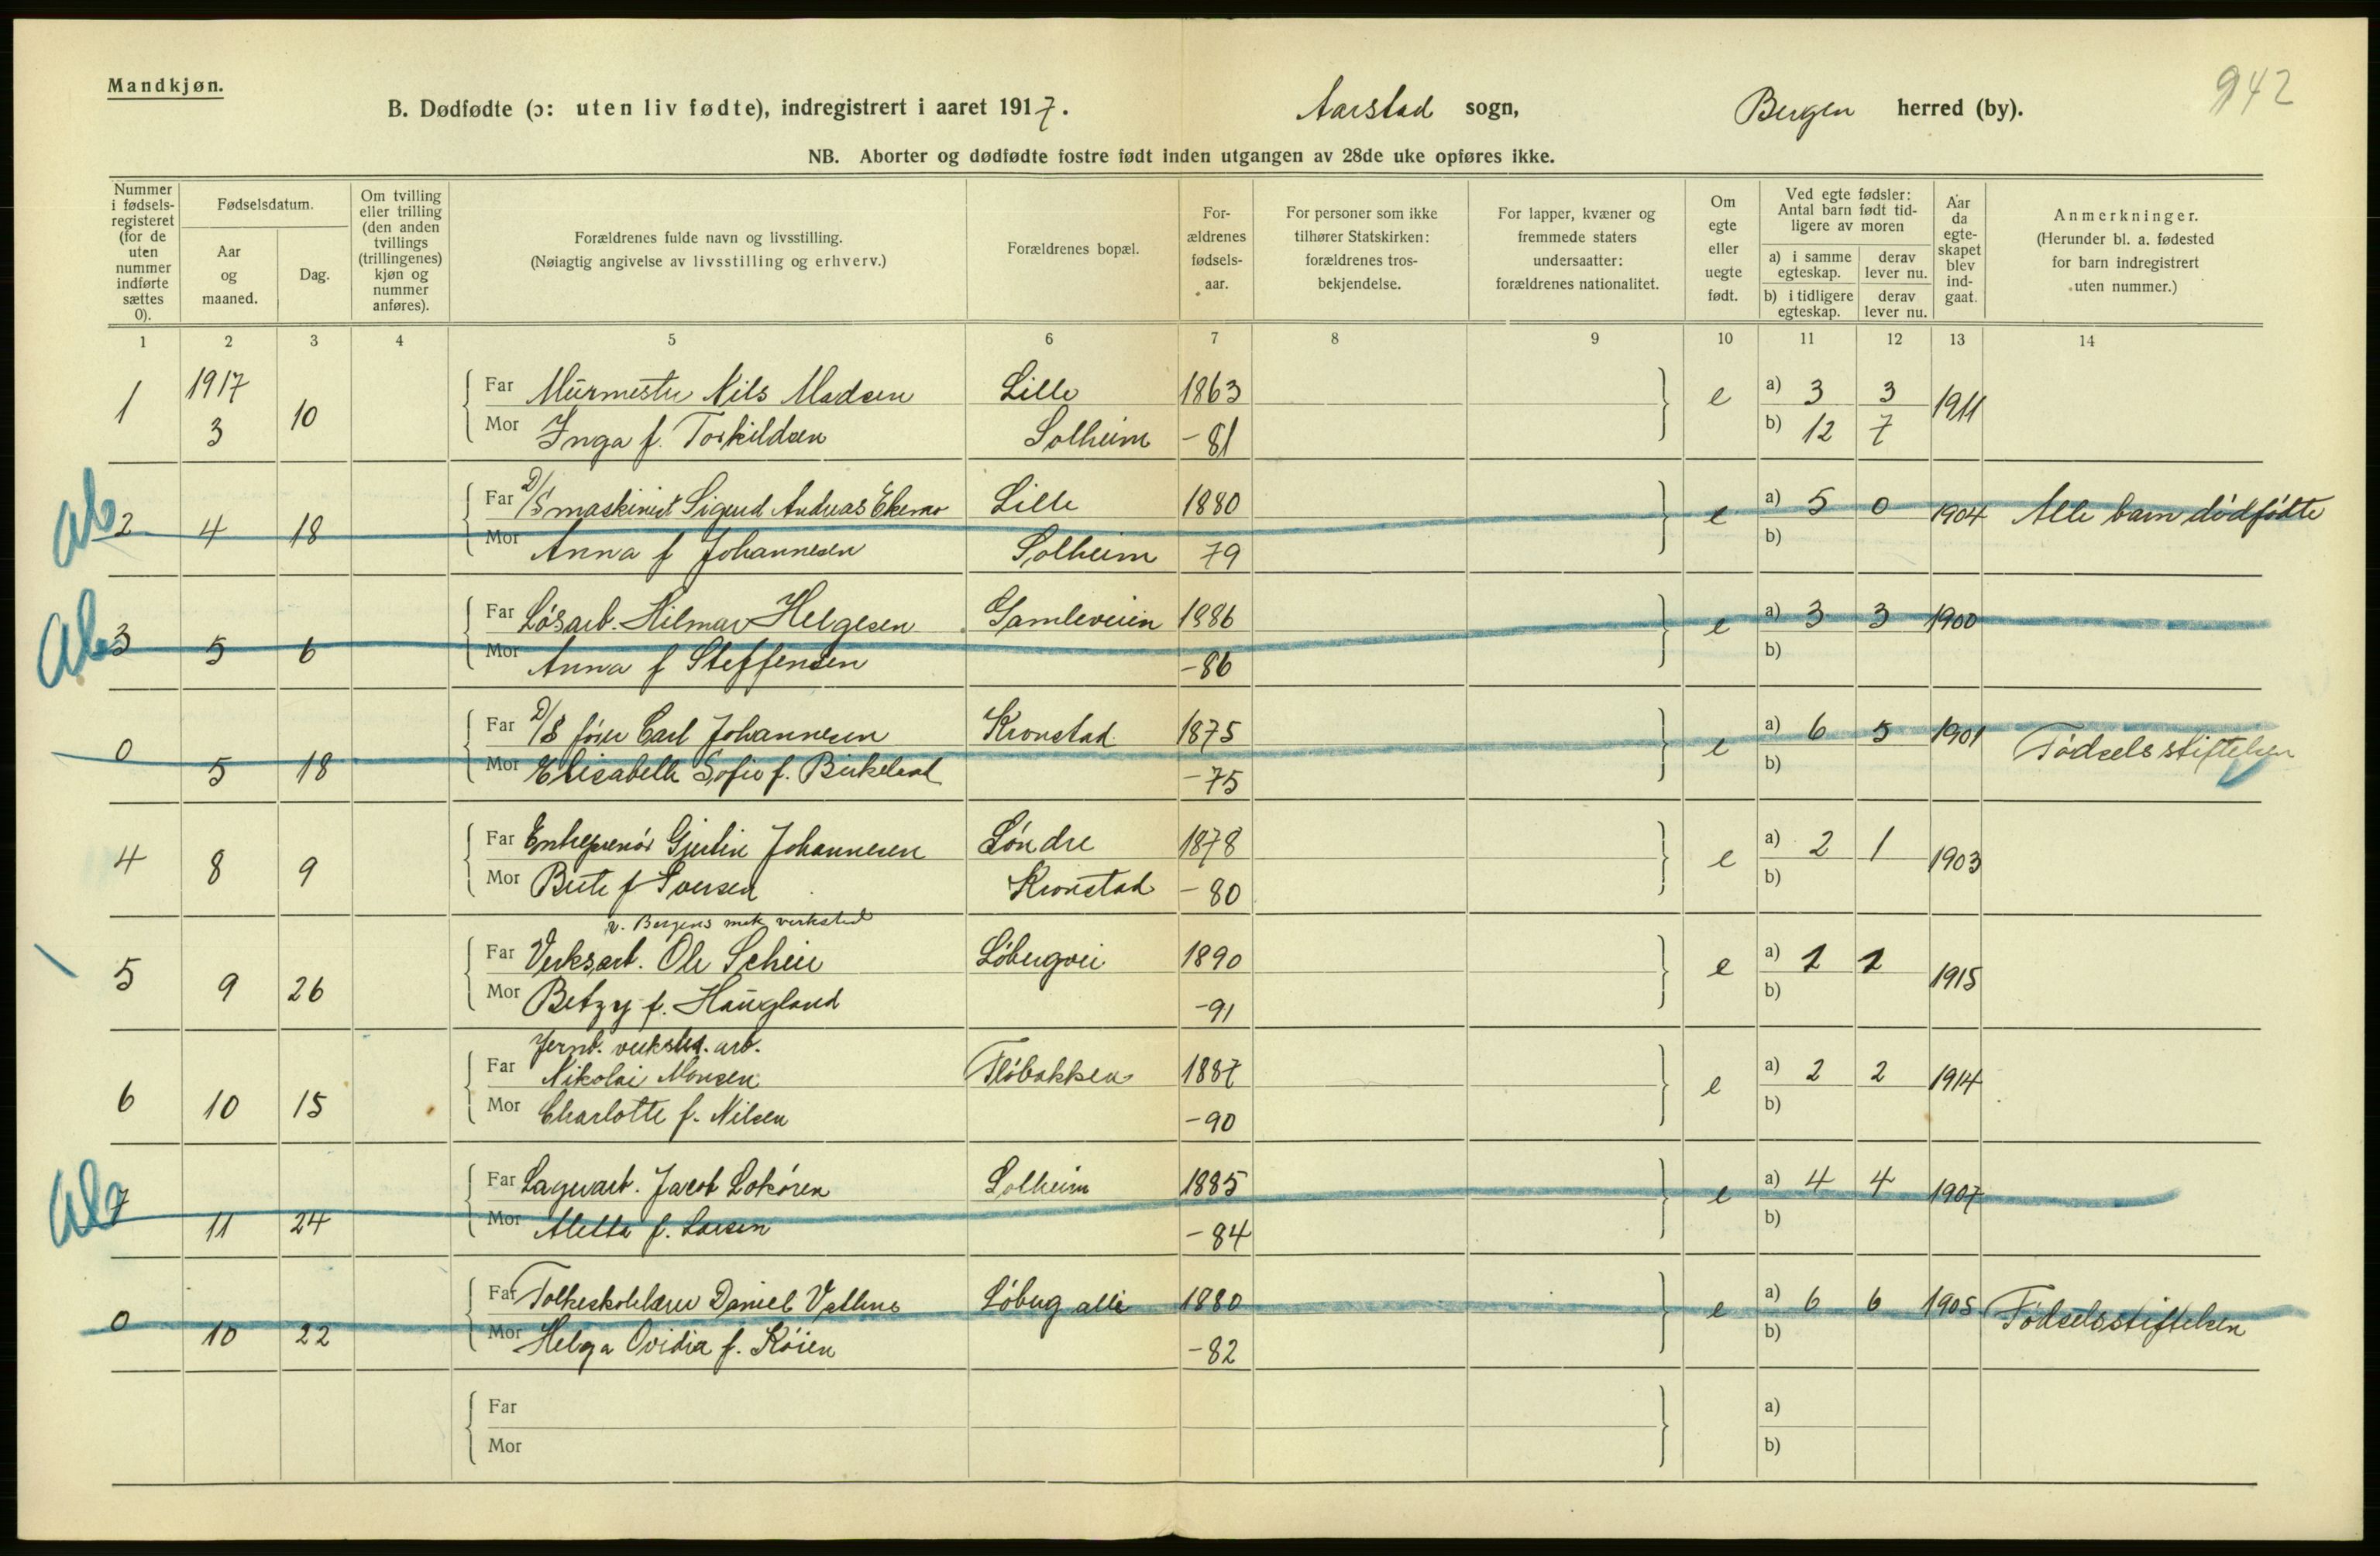 Mandkjøn.
942
B. Dødfødte (ɔ: uten liv fødte), indregistrert i aaret 1917. Aarstad sogn, Bergen herred (by).
NB. Aborter og dødfødte fostre født inden utgangen av 28de uke opføres ikke.
Nummer i fødsels-registeret (for de uten nummer indførte sættes 0).
Fødselsdatum.
Aar og maaned.
Dag.
Om tvilling eller trilling (den anden tvillings (trillingenes) kjøn og nummer anføres).
Forældrenes fulde navn og livsstilling.
(Nøiagtig angivelse av livsstilling og erhverv.)
Forældrenes bopæl.
For-ældrenes fødsels-aar.
For personer som ikke tilhører Statskirken: forældrenes tros-bekjendelse.
For lapper, kvæner og fremmede staters undersaatter: forældrenes nationalitet.
Om egte eller uegte født.
Ved egte fødsler: Antal barn født tid-ligere av moren
a) i samme egteskap.
derav lever nu.
b) i tidligere egteskap.
derav lever nu.
Aar da egte-skapet blev ind-gaat.
Anmerkninger.
(Herunder bl. a. fødested for barn indregistrert uten nummer.)
1 2 3 4 5 6 7 8 9 10 11 12 13 14
1 1917 3 10 Far Murmester Nils Madsen Lille 1863 e a) 3 3 1911
Mor Inga f. Torkildsen Solheim -81 b) 12 7
ab 2 4 18 Far D/S maskinist Sigurd Andreas Lille 1880 e a) 5 0 1904 Alle barn dødfødte
Mor Anna f Johannesen Solheim 79 b)
ab 3 5 6 Far Løsarb. Hilmar Helgesen Gamleveien 1886 e a) 3 3 1900
Mor Anna f Steffensen -86 b)
0 5 18 Far D/S fører Carl Johannesen Kronstad 1875 e a) 6 5 1901 Fødselsstiftelsen
Mor Elisabeth Sofie f. Birkeland -75 b)
4 8 9 Far Entreprenør Gjertin Johannesen Søndre 1878 e a) 2 1 1903
Mor Berte f Iversen Kronstad -80 b)
v. Bergens mek verksted
5 9 26 Far Verksarb. Ole Scheie Løbergvei 1890 e a) 1 1 1915
Mor Betzy f. Haugland -91 b)
Jernb. verksted. arb.
6 10 15 Far Nikolai Monsen Fløbakken 1887 e a) 2 2 1914
Mor Charlotte f. Nilsen -90 b)
ab 7 11 24 Far Lagerarb. Jacob Lokøren Solheim 1885 e a) 4 4 1907
Mor Aletta f. Larsen -84 b)
0 10 22 Far Folkeskolelærer Daniel Løberg alle 1880 e a) 6 6 1905 Fødselsstiftelsen
Mor Helga Ovidia f. Køien -82 b)
Far a)
Mor b)